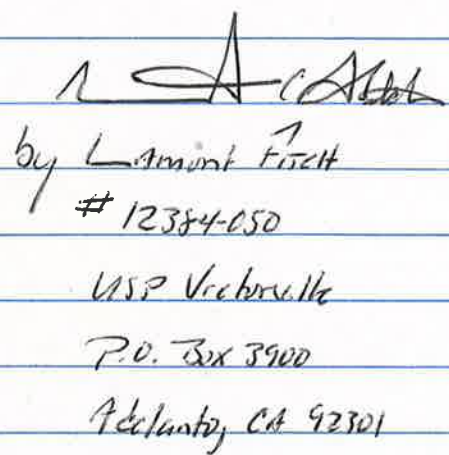 by Lamont Fitch
# 12384-050
USP Victorville
P.O. Box 3900
Adelanto, CA 92301